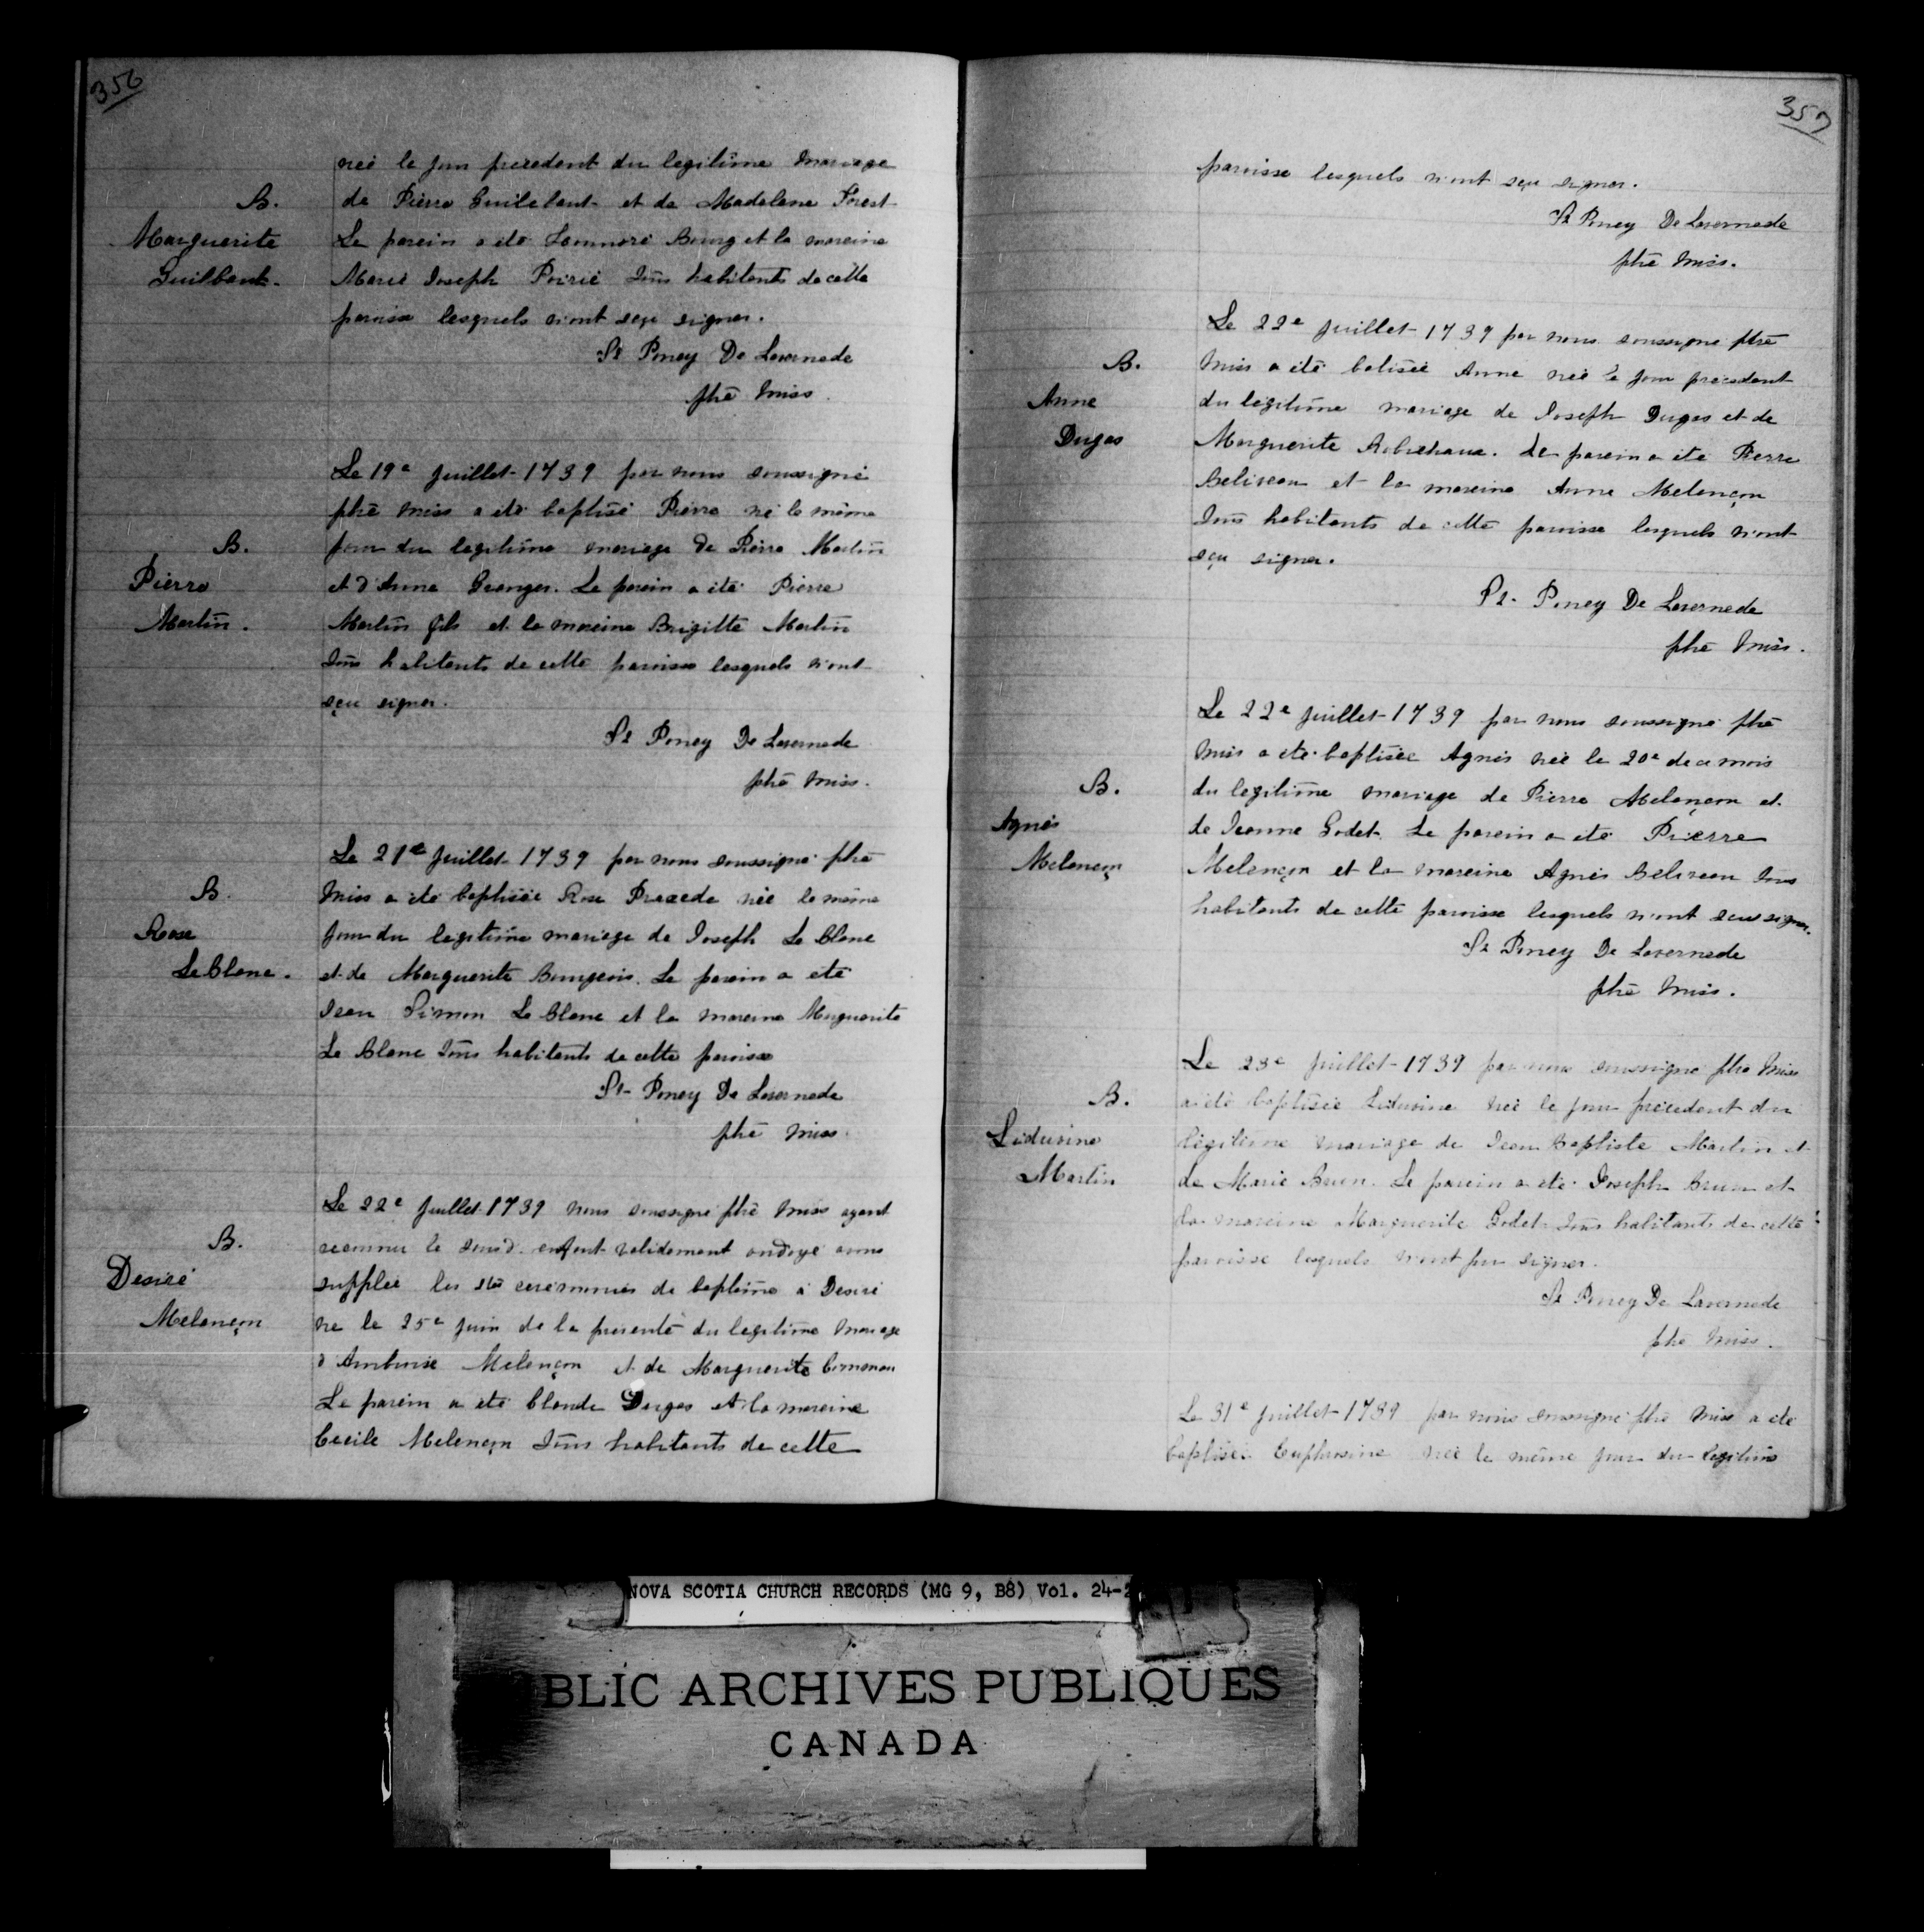 356
née le jour précédent du legitime mariage
B.
de Pierre Guilebaut et de Madelene Forest
Marguerite
Le parein a été Bourg et la mareine
Guilbaut.
Marie Joseph Poirié Tous habitants de cette
paroisse lesquels n'ont sçu signer.
St Poncy De Lavernede
ptre miss.
Le 19e Juillet 1739 par nous soussigné
ptre miss a été baptisé Pierre né le même
B.
jour du legitime mariage de Pierre Martin
Pierre
et d'Anne Granger. Le parein a été Pierre
Martin.
Martin fils et la mareine Brigitte Martin
Tous habitants de cette paroisse lesquels n'ont
sçu signer.
St Poncy De Lavernede
ptre miss.
Le 21e Juillet 1739 par nous soussigné ptre
B.
miss a été baptisée Rose née le même
Rose
jour du legitime mariage de Joseph Le Blanc
LeBlanc.
et de Marguerite Bourgeois. Le parein a été
Jean Simon Le Blanc et la mareine Marguerite
Le Blanc Tous habitants de cette paroisse
St Poncy De Lavernede
ptre miss.
Le 22e Juillet 1739 nous soussigné ptre miss ayant
B.
reconnu le enfant validement ondoyé avons
Desiré
supplée les stes ceremonies de baptême à Desiré
Melençon
né le 25e juin de la presente du legitime mariage
d'Ambroise Melençon et de Marguerite Comeau
Le parein a été Claude Dugas et la mareine
Cecile Melençon Tous habitants de cette
357
paroisse lesquels n'ont sçu signer.
St Poncy De Lavernede
ptre miss.
Le 22e Juillet 1739 par nous soussigné ptre
B.
miss a été batisée Anne née le jour précédent
Anne
du legitime mariage de Joseph Dugas et de
Dugas
Marguerite Robichaux. Le parein a été Pierre
Beliveau et la mareine Anne Melençon
Tous habitants de cette paroisse lesquels n'ont
sçu signer.
St Poncy De Lavernede
ptre miss.
Le 22e Juillet 1739 par nous soussigné ptre
miss a été baptisée Agnés née le 20e de ce mois
B.
du legitime mariage de Pierre Melençon et
Agnés
de Jeanne Godet. Le parein a été Pierre
Melençon
Melençon et la mareine Agnés Beliveau Tous
habitants de cette paroisse lesquels n'ont sceu signer.
St Poncy De Lavernede
ptre miss.
Le 23e Juillet 1739 par nous soussigné ptre miss
B.
a été baptisée Lidusine née le jour précédent du
Lidusine
légitime mariage de Jean Baptiste Martin et
Martin
de Marie Brun. Le parein a été Joseph Brun et
la mareine Marguerite Godet Tous habitants de cette
paroisse lesquels n'ont pu signer.
St Poncy De Lavernede
ptre miss.
Le 31e Juillet 1739 par nous soussigné ptre miss a été
baptisée Euphrosine née le même jour du legitime
NOVA SCOTIA CHURCH RECORDS (MG 9, B8) Vol. 24-2
BLIC ARCHIVES PUBLIQUES
CANADA